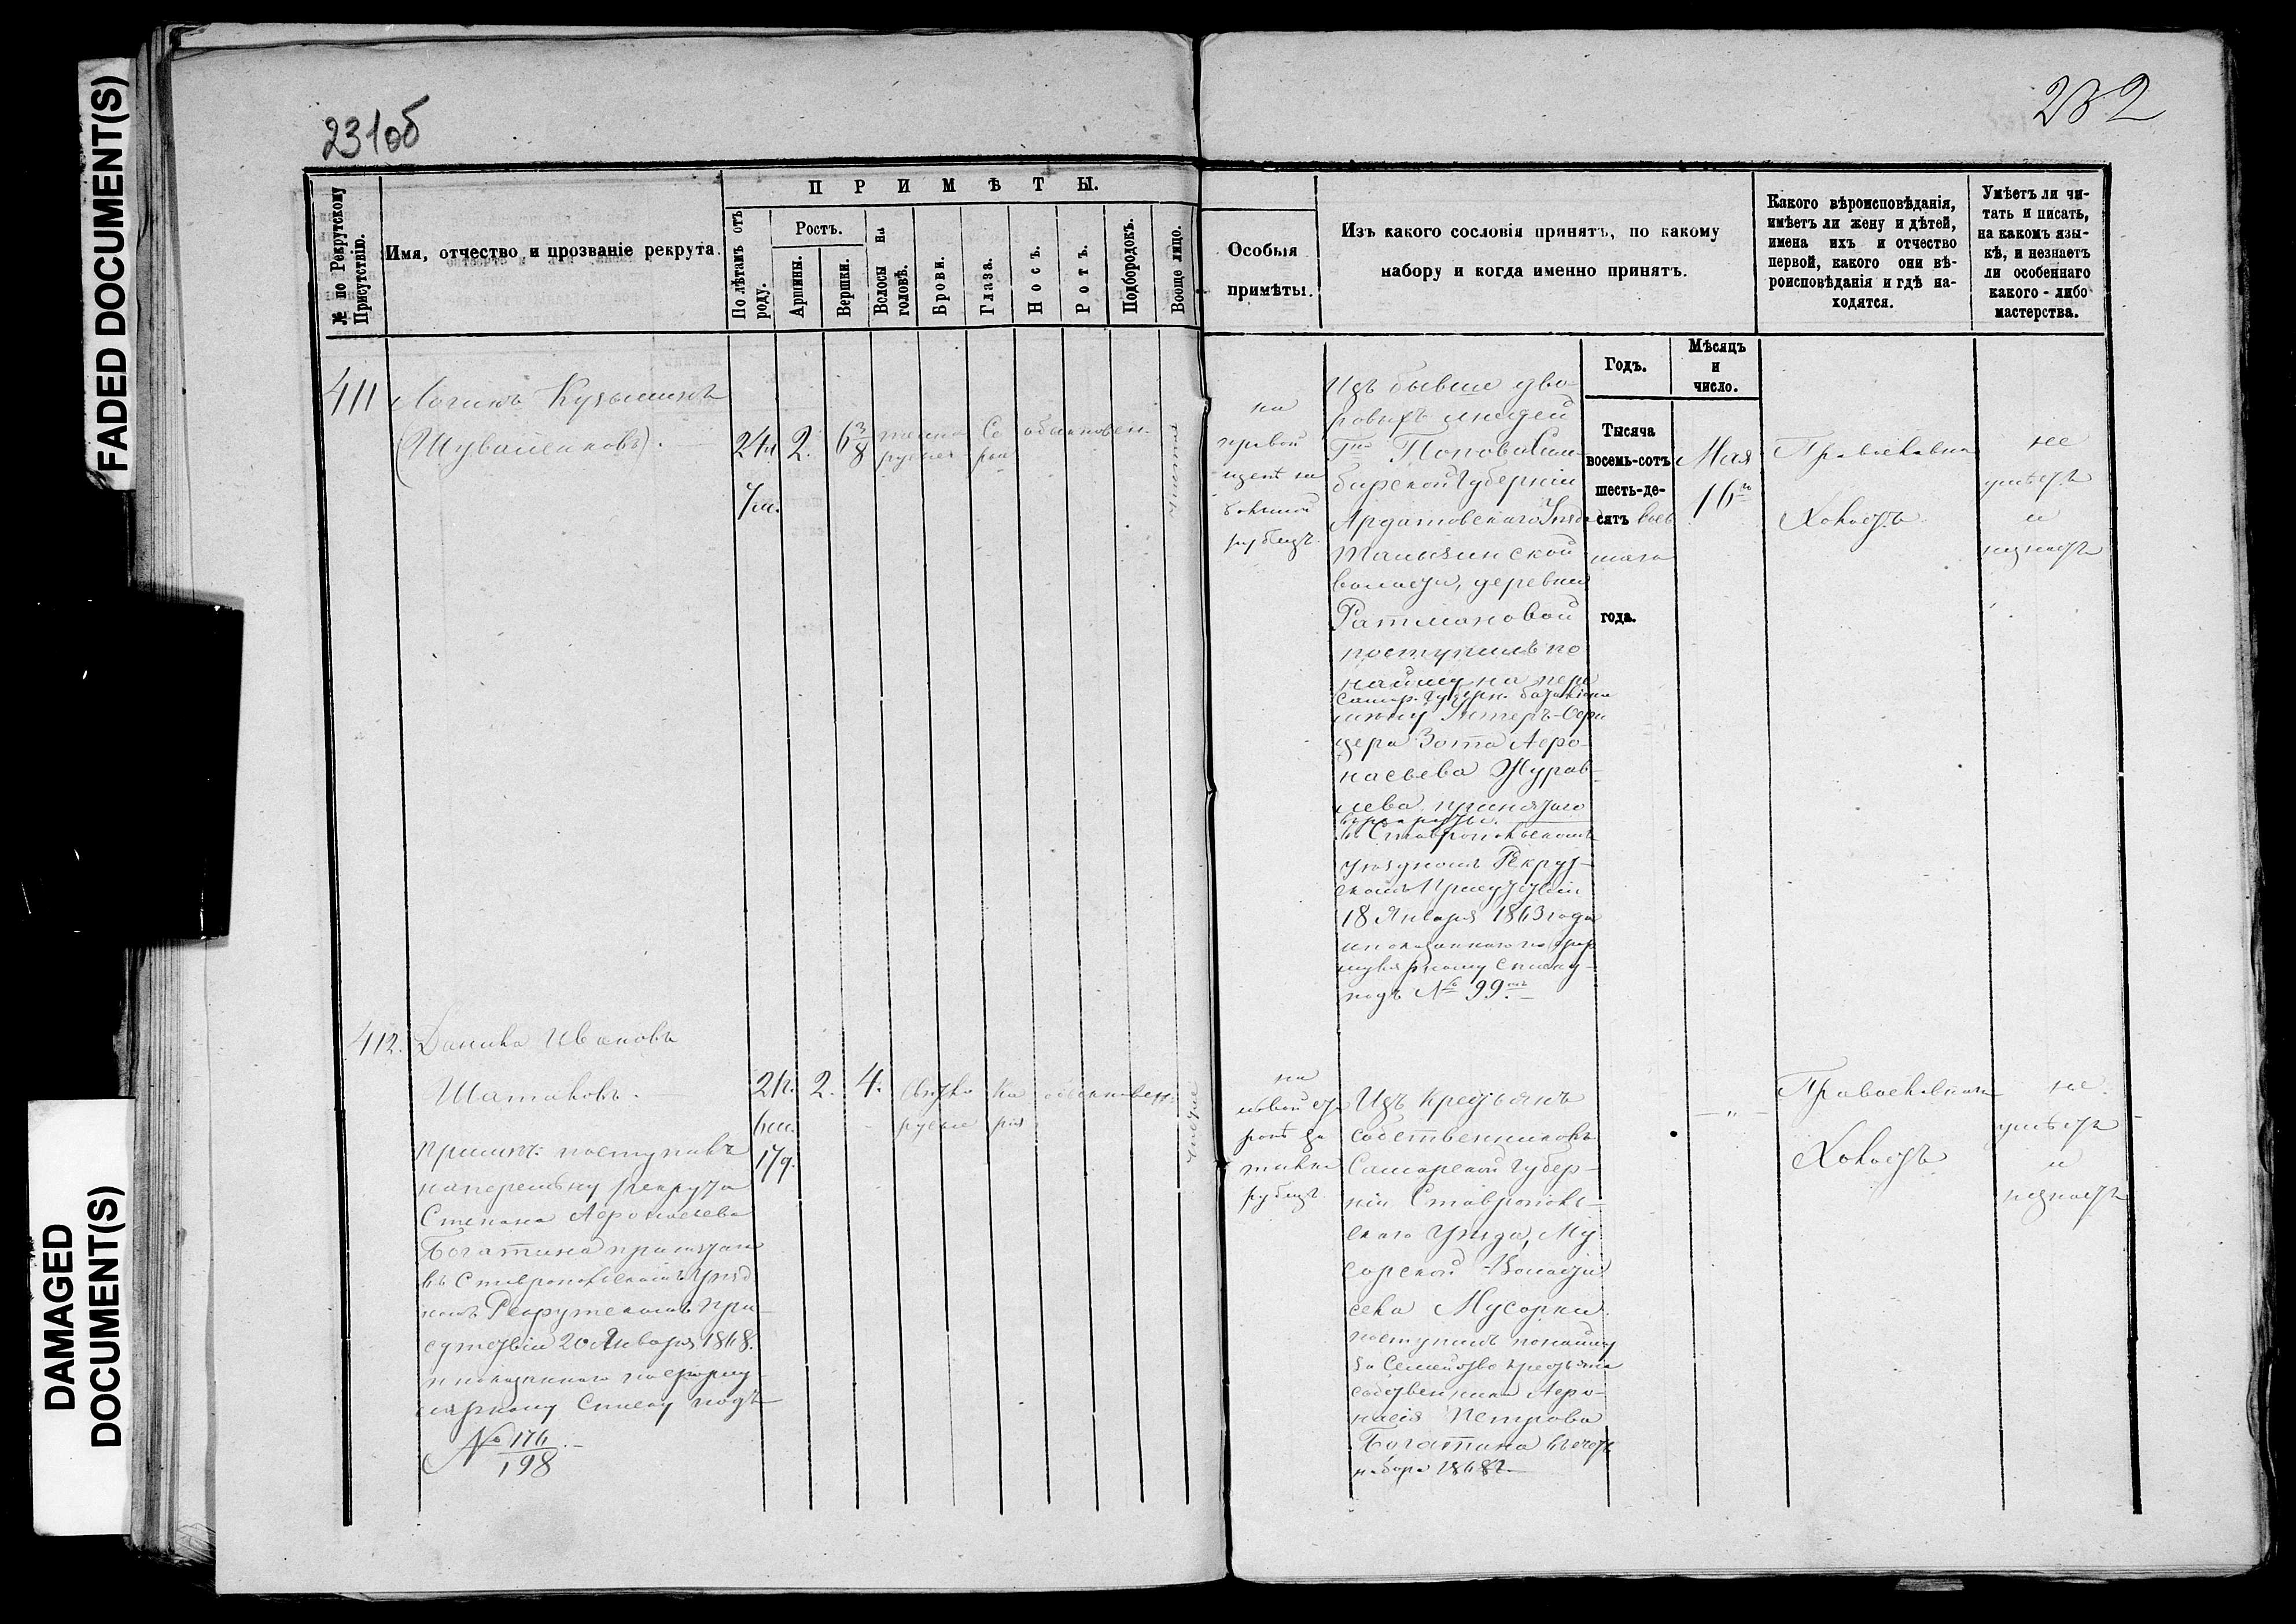 FADED DOCUMENT(S)
DAMAGED
DOCUMENT(S)
231об
232
№ по Рекрутскому Присутствію.
Имя, отчество и прозваніе рекрута.
ПРИМѢТЫ.
По лѣтамъ отъ роду.
Ростъ.
Аршины.
Вершки.
Волосы на головѣ.
Брови.
Глаза.
Носъ.
Ротъ.
Подбородокъ.
Вооще лицо.
Особыя
примѣты.
Изъ какого сословія принятъ, по какому
набору и когда именно принятъ.
Какого вѣроисповѣданія,
имѣетъ ли жену и дѣтей,
имена ихъ и отчество
первой, какого они вѣ-
роисповѣданія и гдѣ на-
ходятся.
Умѣетъ ли чи-
тать и писать,
на какомъ язы-
кѣ, и незнаетъ
ли особеннаго
какого-либо
мастерства.
Годъ.
Мѣсяцъ
и
число.
411
Логинъ Кузьминъ
24 2. 6 3/8 темно Сѣ обыкновен.
русые рые
7м.
чистое
на
правой
щекѣ
рубецъ
Изъ бывше дво-
ровыхъ людей
Гна Попова Сим-
бирской Губерніи
Ардатовскаго Уѣзда
волости, деревни
Ратмановой
поступилъ по
найму на пере
Самар. Губерн. баталіона
мѣну Унтеръ-Офи
цера Зота Афо-
насьева Журав-
лева принятаго
въ рекруты
въ Ставропольскомъ
уѣздномъ Рекрут-
скомъ Присутствіи
18 Января 1863 года
и показаннаго по фор
мулярному списку
подъ № 99мъ
Тысяча
восемь-сотъ
шесть-де-
сятъ вось
маго
года.
Мая
16го
Православна
Холостъ
не
умѣетъ
и
незнаетъ
412. Данила Ивановъ
Шаталовъ.
21. 2. 4. свѣтло Ка обыкновен:
русые ріе
6м.
17д.
чистое
примѣч: поступилъ
на перемѣну рекрута
Степана Афонасьева
Богатина принятаго
въ Ставропольскомъ Уѣзд
номъ Рекрутскомъ При-
сутствіи 20 Января 1868.
и показаннаго по форму
лярному Списку подъ
№ 176/198
на
лѣвой сто
ронѣ
рубецъ
Изъ Крестьянъ
собственниковъ
Самарской Губер-
ніи Ставрополь-
скаго Уѣзда, Му
сорской Волости
села Мусорки
поступилъ по найму
за Семейство Крестьянина
собственника Афо-
насія Петрова
Богатина въ счетъ
набора 1868 г.
— „ —
Православна
Холостъ
не
умѣетъ
и
незнаетъ